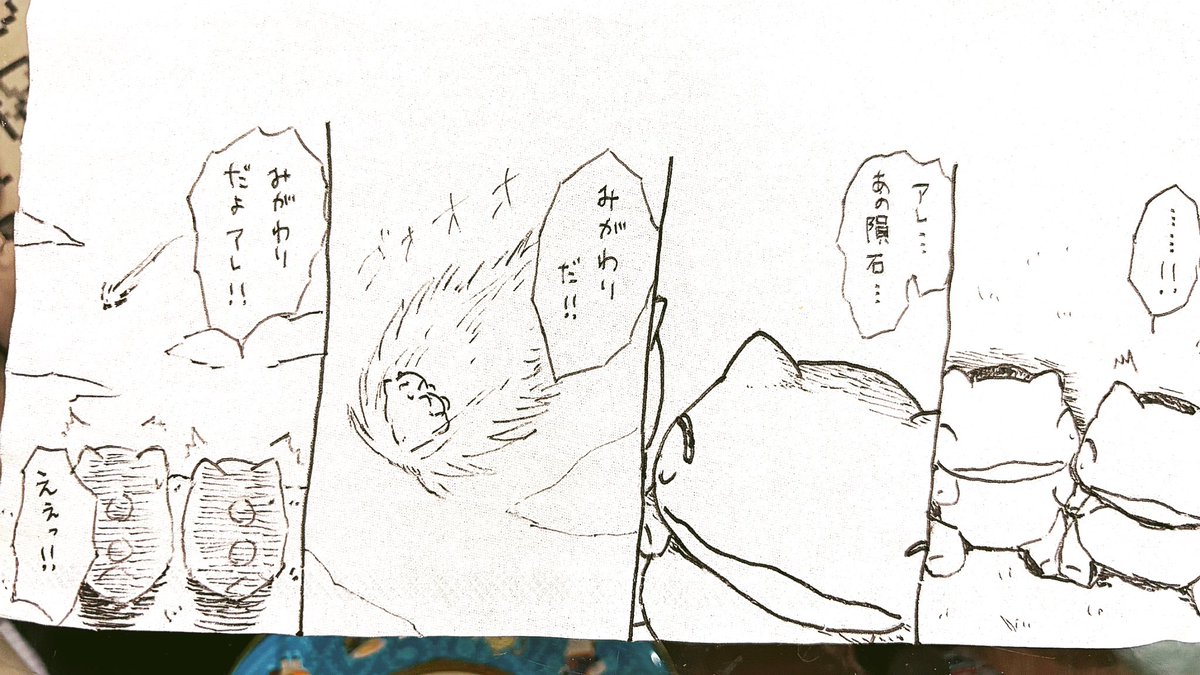 ……!!
アレ…
あの隕石…
みがわり
だ!!
みがわり
だよアレ!!
ええっ!!